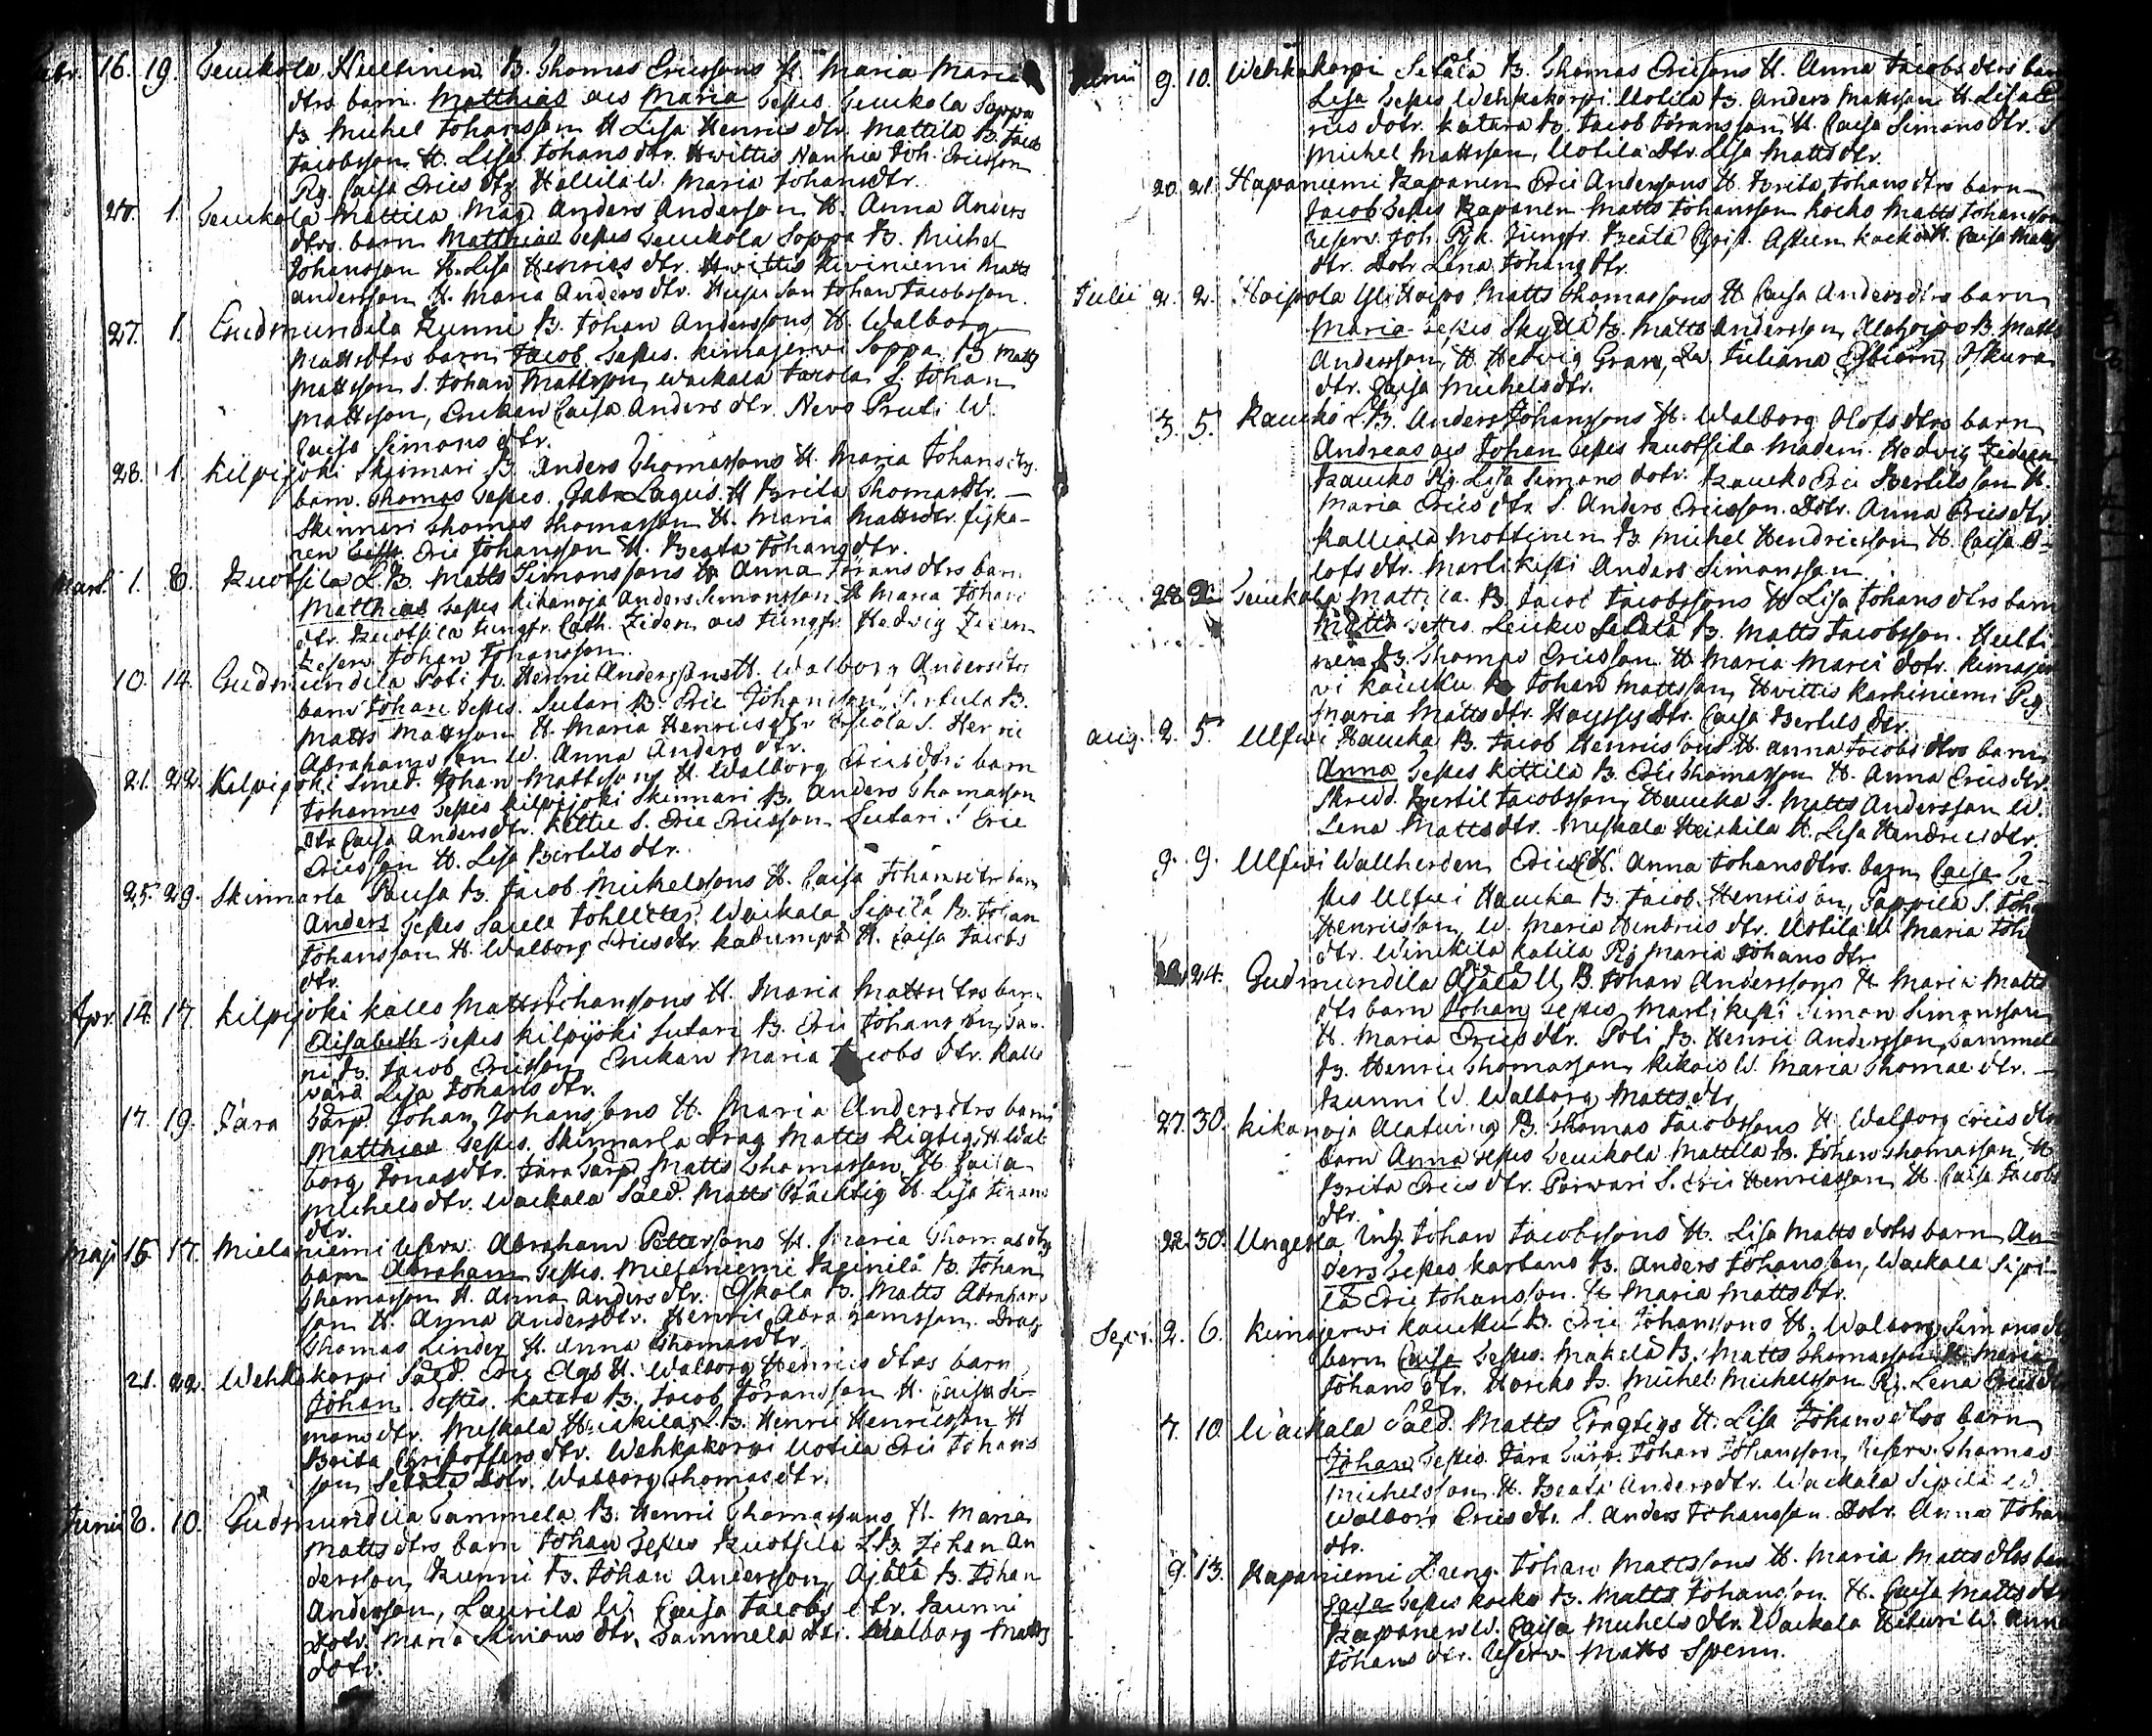 16. 19. Seukola Hultinen B. Thomas Ericssons H. Maria Marci
dtrs barn. Matthias ac Maria Sestes Seukola Soppa
B Michel Johansson H Lisa Henrics dtr. Mattila B. Jacob
Jacobsson H. Lisa Johans dtr. Hwittis Joh. Ericsson
Pig. Caisa Erics dtr Hallila W. Maria Johansdtr.
1. Seukola Mattila Anders Andersson H. Anna Anders
dtrs. barn Matthias Sestes Seukola Soppa B. Michel
Johansson H. Lisa Henrics dtr. Hwittis Kiviniemi Matts
andersson H. Maria Anders dtr. Johan Jacobsson.
27. 1. Gudmundila Kunni B. Johan Anderssons H. Walborg
Mattsdtrs barn Jacob Sestes. Kimajerwi Soppa B Matts
Mattsson S. Johan Mattsson, Wackala S. Johan
Mattsson, Enkan Caisa Anders dtr. W.
Caisa Simons dtr.
28. 1. Kilpijoki Skinnari B. Anders Thomassons H. Maria Johans dtrs.
barn. Thomas Sestes. Gabr. Lagus. H Brita Thomasdtr. —
Skinnari Thomas Thomasson H. Maria Mattsdtr.
Eric Johansson H. Beata Johans dtr.
Mart. 1. 8. Kuotsila L. B. Matts Simonssons H Anna Jörans dtrs barn
Matthias Sestes Kikanoja Anders Simonsson H Maria Johans
dtr. Kuotsila Jungfr. Cath. Ziden ac Jungfr. Hedvig Ziden
Reserv. Johan Johansson.
10. 14. Gudmundila Poti B. Henric Anderssons H. Walborg Andersdtrs
barn Johan Sestes. Sutari B. Eric Johansson, B.
Matts Mattsson H. Maria Henricsdtr S. Henric
Abrahamsson W. Anna Anders dtr.
21. 22. Kilpijoki Smed. Johan Mattssons H. Walborg Ericsdtrs barn
Johannes Sestes Kilpijoki Skinnari B. Anders Thomasson
dtr Caisa Andersdtr. S. Eric Ericsson Sutari Eric
Ericsson H. Lisa Bertils dtr.
25. 29. Skinnarla Pausa B. Jacob Michelssons H. Caisa Johansdtrs barn
Anders Sestes Wackala Sipilä B. Johan
Johansson H. Walborg Ericsdtr H. Caisa Jacobs
dtr.
Apr. 14. 17. Kilpijoki Kalls Matts Johanssons H. Maria Mattsdtrs barn
Elisabeth Sestes Kilpijoki Sutari B. Eric Johansson,
B. Jacob Ericsson Enkan Maria Jacobs dtr. Kalle
Lisa Johans dtr.
17. 19. Jara Torp. Johan Johanssons H. Maria Andersdtrs barn
Matthias Sestes. Skinnarla Drag Matts Rigtig, H Wal
borg Jonasdtr. Jara Torp. Matts Thomasson H. Caisa
Michelsdtr. Wackala Sold. Matts H. Lisa Johans
dtr.
Maji 15. 17. Mielaniemi Reserv. Abraham Petterssons H. Maria Thomasdtrs
barn Abraham Sestes. Mielaniemi Reinilä B. Johan
Thomasson H. Anna Anders dtr. Eskola B. Matts Abrahams
son H. Anna Andersdtr. Henric Abrahamsson. Drag
Thomas Linder H. Anna Thomasdtr.
21. 22. Wehkakorpi Sold. Eric Elgs H. Walborg Henrics dtrs barn
Johan. Sestes. Katara B. Jacob Göransson H. Caisa Si-
monsdtr. Meskala Heickilä L. B. Henric Henricsson H
Brita Christoffers dtr. Wehkakorpi Uotila Eric Johans
son Setälä Dotr. Walborg Thomasdtr.
Junii 8. 10. Gudmundila Sammela B. Henric Thomassons H. Maria
Mattsdtrs barn Johan Sestes Kuotsila L B. Johan An
dersson, Kunni B. Johan Andersson, Ajälä B. Johan
Andersson, Laurila W. Caisa Jacobs dtr. Kunni
Dotr. Maria Simons dtr. Sammela dtr. Walborg Matts
dotr.
Junii 9. 10. Wehkakorpi Setälä B. Thomas Ericssons H. Anna Jacobs dtrs barn
Lisa Sestes Wehkakorpi Uotila B. Anders Mattsson H. Lisa E
rics dotr. Katara B. Jacob Göransson H. Caisa Simonsdtr. S
Michel Mattsson, Uotila Dtr. Lisa Mattsdtr.
20. 21. Hapaniemi Kapanen Eric Anderssons H. Brita Johans dtrs barn
Jacob Sestes Kapanen Matts Johansson Kocko Matts Johansson
Reserv. Joh. Jungfr. Beata Kocko H. Caisa Matts
dtr. Dotr. Lena Johans dtr.
Julii 2. 2. Hoipola Yli Hoipo Matts Thomassons H Caisa Andersdtrs barn
Maria Sestes Skyttä B. Matts Andersson, Alahoipo B. Matts
Andersson, H Hedvig Gran, Juliana
dtr. Caisa Michelsdtr.
3. 5. Kaucko L. B. Anders Johanssons H. Walborg Olofs dtrs barn
Andreas ac Johan Sestes Kuotsila Madem. Hedvig Ziden
Kaucko Pig. Lisa Simons dotr. Kaucko Eric Bertilsson H.
Maria Erics dtr S. Anders Ericsson. Dotr. Anna Ericsdtr.
Kalliala Mottinen B. Michel Hendricsson H. Caisa O-
lofs dtr. Martikissi Anders Simonsson
28. Seukola Mattila B. Jacob Jacobssons H Lisa Johans dtrs barn
Matts Sestes. Setälä B. Matts Jacobsson. Hulti
nen B. Thomas Ericsson H Maria Marci dotr. Kimajer
vi Kaucku B Johan Mattsson, Hvittis Karhiniemi Pig
Maria Matts dtr. dtr. Caisa Bertils dtr.
Aug. 2. 5. Ulfwi Haucka B. Jacob Henricssons H. Anna Jacobs dtrs barn
Anna Sestes Kittilä B. Eric Thomasson H. Anna Ericsdtr
Skredd. Bertil Jacobsson, Haucka S. Matts Andersson W.
Lena Mattsdtr. Meskala Heickilä H. Lisa Hendricsdtr.
9. 9. Ulfwi Wallherden Erics H. Anna Johansdtrs. barn Caisa Se-
stes Ulfwi Haucka B. Jacob Henricsson, Pappila S. Joh
Henricsson, W. Maria Hindrics dtr. Uotila W Maria Joh
dtr. Winckila Katila Pig Maria Johans dtr.
24. Gudmundila Ajälä U, B. Johan Anderssons H Maria Matts
dtrs barn Johan Sestes Martikissi Simon Simonsson
H. Maria Erics dtr. Poti B. Henric Andersson, Sammela
B. Henric Thomasson, W. Maria Thomae dtr. —
Kunni W. Walborg Matts dtr
27. 30. Kikanoja Alatwing B. Thomas Jacobssons H. Walborg Erics dtrs
barn Anna Sestes Seukola Mattila B. Johan Thomasson, H
Brita Erics dtr. Porwari S. Eric Henricsson H. Caisa Jacobs
dtr.
22. 30. Ungersla Johan Jacobssons H. Lisa Matts dotrs barn An-
ders Sestes Kartano B. Anders Johansson, Wackala Sipi-
lä Eric Johansson. H Maria Mattsdtr.
Sept. 2. 6. Kimajerwi Kaucku B. Eric Johanssons H. Walborg Simonsdtr
barn Caisa Sestes. Makelä B. Matts Thomasson H. Maria
Johans dtr. Horcko B. Michel Michelsson Pig. Lena Ericsdtr
7. 10 Wackala Sold. Matts H. Lisa Johansdtrs barn
Johan Sestes Jara Torp. Johan Johansson, Reserv. Thomas
Michelsson H. Beata Andersdtr. Wackala Sipilä W.
Walborg Ericsdtr. S. Anders Johansson. Dotr. Anna Johans
dtr.
9. 13. Kapaniemi Dreng. Johan Mattssons H. Maria Mattsdtrs barn
Caisa Sestes Kocko B. Matts Johansson H. Caisa Mattsdtr
Kapanen W. Caisa Michelsdtr. Wackala W. Anna
Johans dtr. Reserv. Matts Spenn.